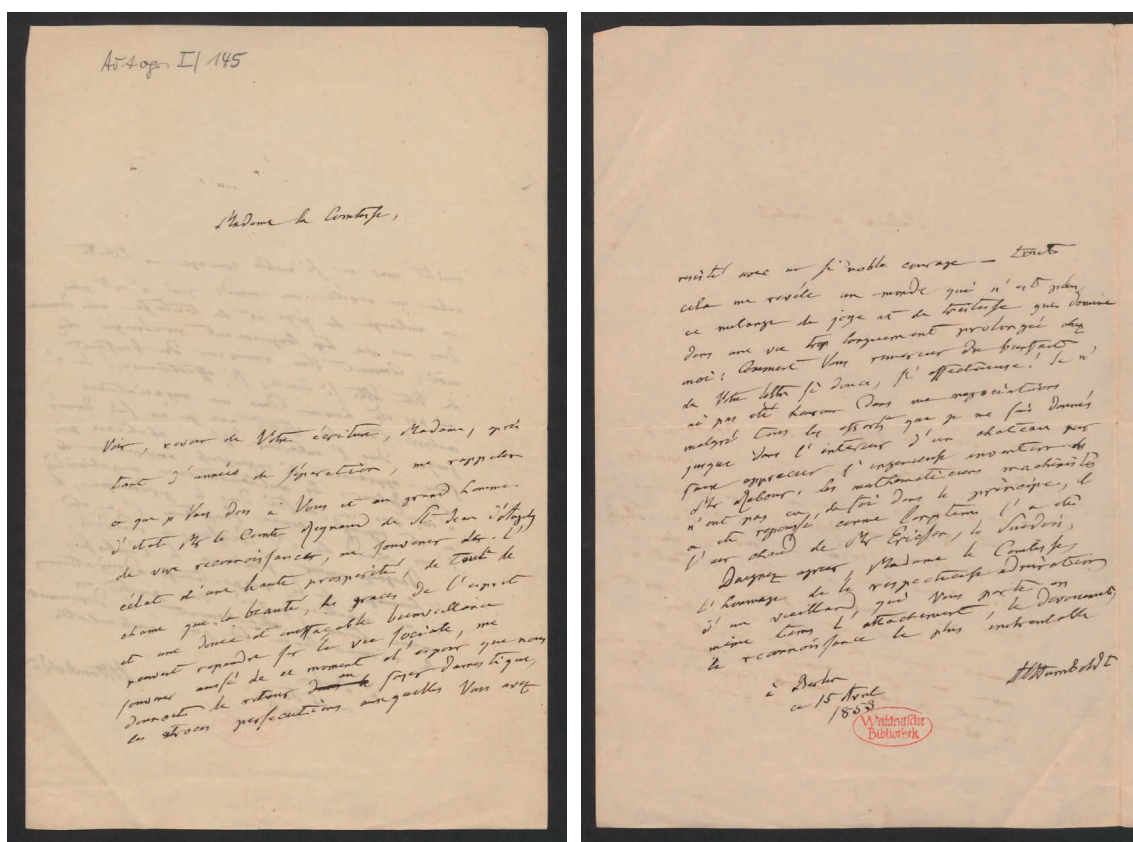 Autogr. I/145
Madame la Comtesse,
Voir, revoir de Votre écriture, Madame, après
tant d'années de séparation, me rappeler
ce que je Vous dois a Vous et au grand homme
d'état Mr le Comte Regnaud de St. Jean d'Angely
de vive reconnoissance, me souvenir de l'é-
célat d'une haute prosperité, de tout le
charme que la beauté, les graces de l'esprit
et une douce et ineffaçable bienveillance
peuvent repandre sur la vie sociale, me
souvenir aussi de ce moment d'espoir que nous
donnoit le retour au foyer domestique,
les atroces persecutions auxquelles Vous avez
resisté avec un si noble courage — tout
cela me revèle un monde qui n'est plus,
ce melange de joye et de tristesse qui domine
dans une vie trop longuement prolongée chez
moi! Comment Vous remercier du bienfait
de Votre lettre si douce, si affectueuse! Je n'
ai pas été heureux dans ma negociation
malgré tous les efforts que je me suis donnés
jusque dans l'interieur d'un chateau pour
faire apprecier l'ingenieuse invention de
Mr Rebour, les mathematiciens machinistes
n'ont pas eu de foi dans le principe, il
a été repoussé comme longtems l'a été
l'air chaud de Mr Ericson, le Suédois,
Daignez agreer, Madame la Comtesse,
l'hommage de la respectueuse admiration
d'un vieillard, qui Vous porte en
même tems l'attachement, le devouement,
la reconnoissance la plus inebranlable
AlHumboldt
à Berlin
ce 15 Avril
1853
Westdeutsche
Bibliothek